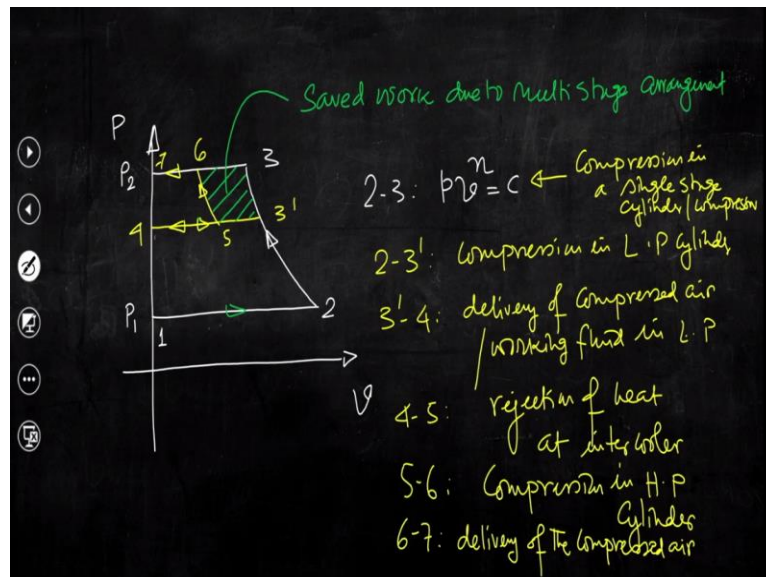 Saved work due to multistage arrangement
P
P2
7
6
3
4
5
3'
P1
1
2
V
2-3: pv^n = c ← Compression in a single stage cylinder/compressor
2-3': Compression in L.P cylinder
3'-4: delivery of compressed air
/working fluid in L.P
4-5: rejection of heat
at intercooler
5-6: Compression in H.P
Cylinder
6-7: delivery of the compressed air